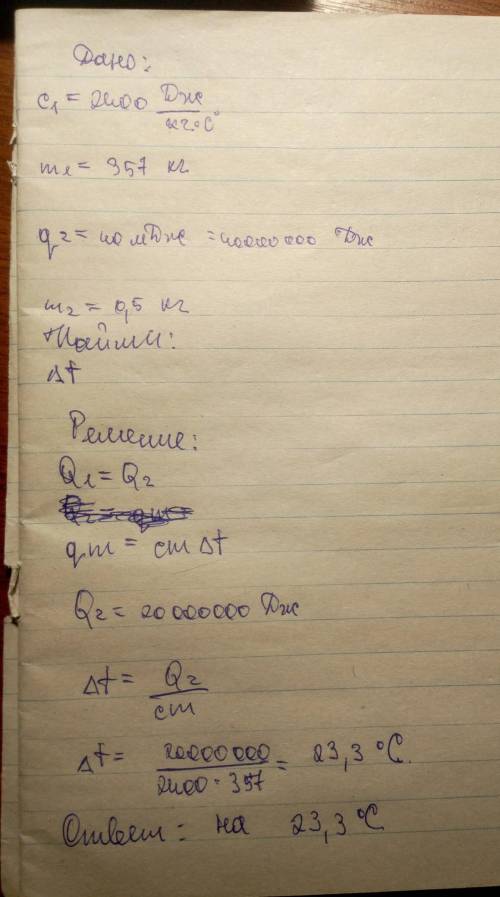 Дано:
c₁ = 2400 Дж/кг·°C
m₁ = 357 кг
q₂ = 40 мДж = 40000000 Дж
m₂ = 0,5 кг
Найти:
Δt
Решение:
Q₁ = Q₂
qm = cmΔt
Q₂ = 20000000 Дж
Δt = Q₂/cm
Δt = 20000000/2400·357 = 23,3 °C.
Ответ: на 23,3 °C